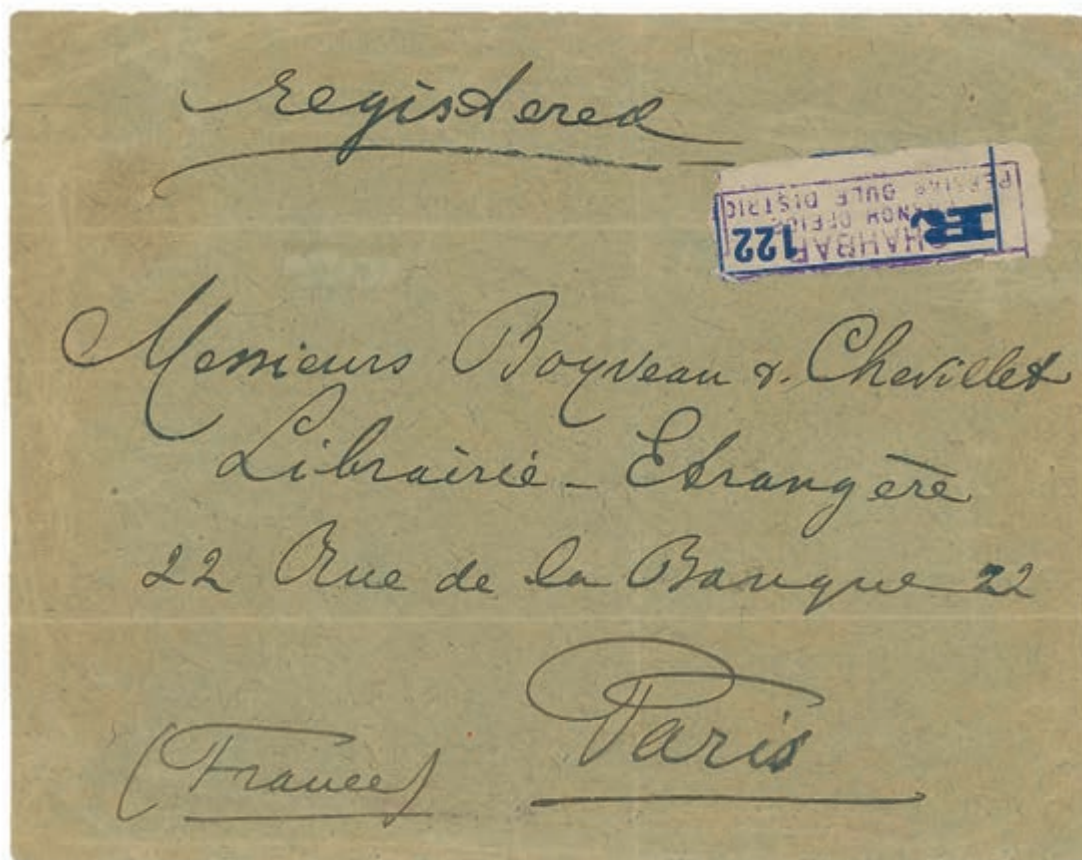 registered
R
122
CHAHBAR
BRANCH OFFICE
PERSIAN GULF DISTRIC
Messieurs Boyveau &. Chevillet
Librairie - Etrangère
22 Rue de la Banque 22
Paris
(France)